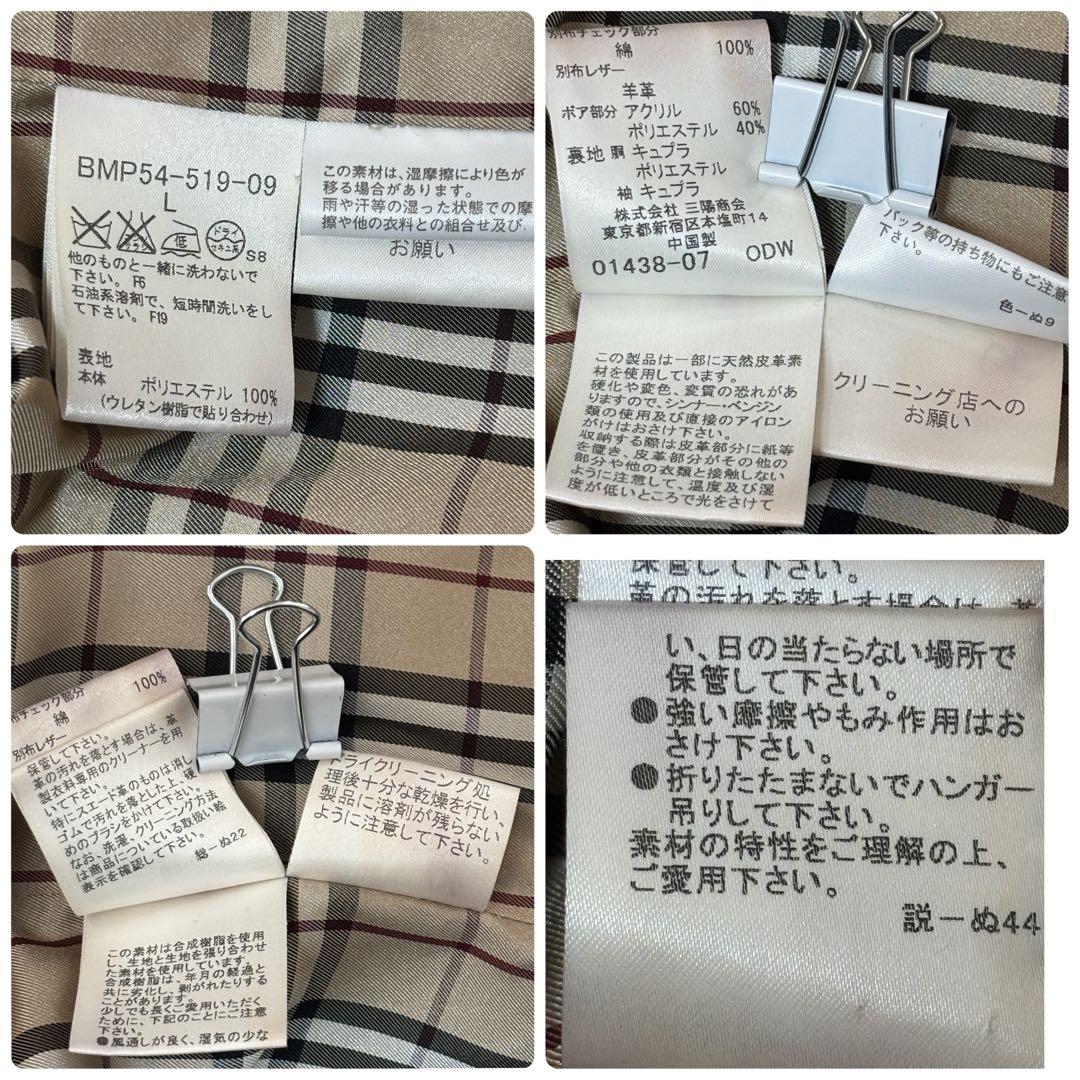 BMP54-519-09
L
ドライ
セキユ系
S8
他のものと一緒に洗わないで
下さい。 F6
石油系溶剤で、短時間洗いをし
て下さい。F19
表地
本体
ポリエステル 100%
(ウレタン樹脂で貼り合わせ)
この素材は、湿摩擦により色が
移る場合があります。
雨や汗等の湿った状態での摩
擦や他の衣料との組合せ及び、
お願い
別布チェック部分
綿 100%
別布レザー
羊革
ボア部分 アクリル 60%
ポリエステル 40%
裏地 胴 キュプラ
ポリエステル
袖 キュプラ
株式会社 三陽商会
東京都新宿区本塩町14
中国製
01438-07 ODW
この製品は一部に天然皮革素
材を使用しています。
硬化や変色、変質の恐れがあ
りますので、シンナー・ベンジン
類の使用及び直接のアイロン
がけはおさけ下さい。
収納する際は皮革部分に紙等
を置き、皮革部分がその他の
部分や他の衣類と接触しない
ように注意して、温度及び湿
度が低いところで光をさけて
バック等の持ち物にもご注意
下さい。
色-ぬ9
クリーニング店への
お願い
布チェック部分
綿 100%
別布レザー
保管して下さい。
革の汚れを落とす場合は、革
製衣料専用のクリーナーを用
いて下さい。
特にスエード革のものは消し
ゴムで汚れを落とした上、硬
めのブラシをかけて下さい。
なお、洗濯、クリーニング方法
は商品についている取扱い絵
表示を確認して下さい。
総-ぬ22
ドライクリーニング処
理後十分な乾燥を行い、
製品に溶剤が残らない
ように注意して下さい。
この素材は合成樹脂を使用
し、生地と生地を張り合わせ
た素材を使用しています。
合成樹脂は、年月の経過と
共に劣化し、剥がれたりする
ことがあります。
少しでも長くご愛用いただく
ために、下記のことにご注意
下さい。
●風通しが良く、湿気の少な
保管して下さい。
革の汚れを落とす場合は、革
い、日の当たらない場所で
保管して下さい。
●強い摩擦やもみ作用はお
さけ下さい。
●折りたたまないでハンガー
吊りして下さい。
素材の特性をご理解の上、
ご愛用下さい。
説-ぬ44